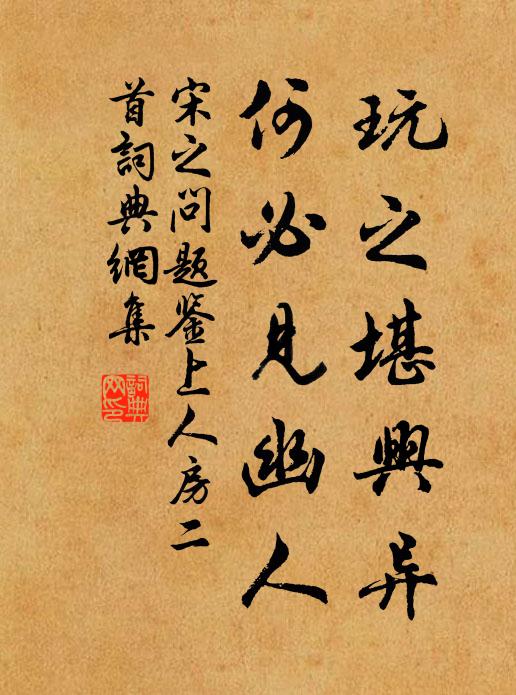 玩之堪興异
何必見幽人
宋之问題鉴上人房二
首詞典網集
詞典
网印